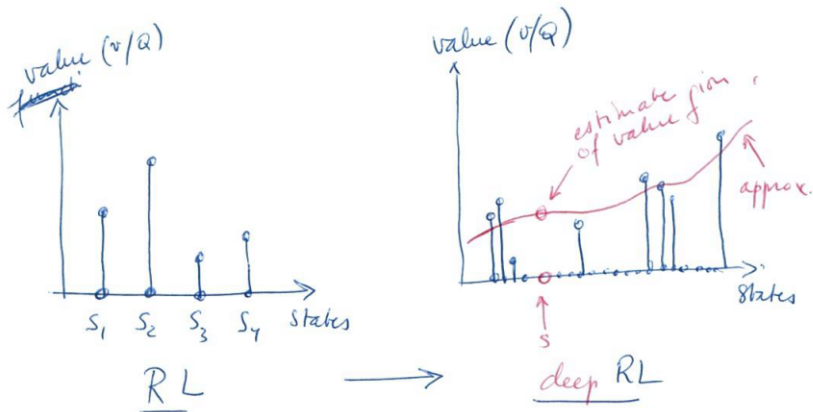 value (v/Q)
S1 S2 S3 S4 States
RL
value (v/Q)
estimate
of value
approx.
States
s
deep RL